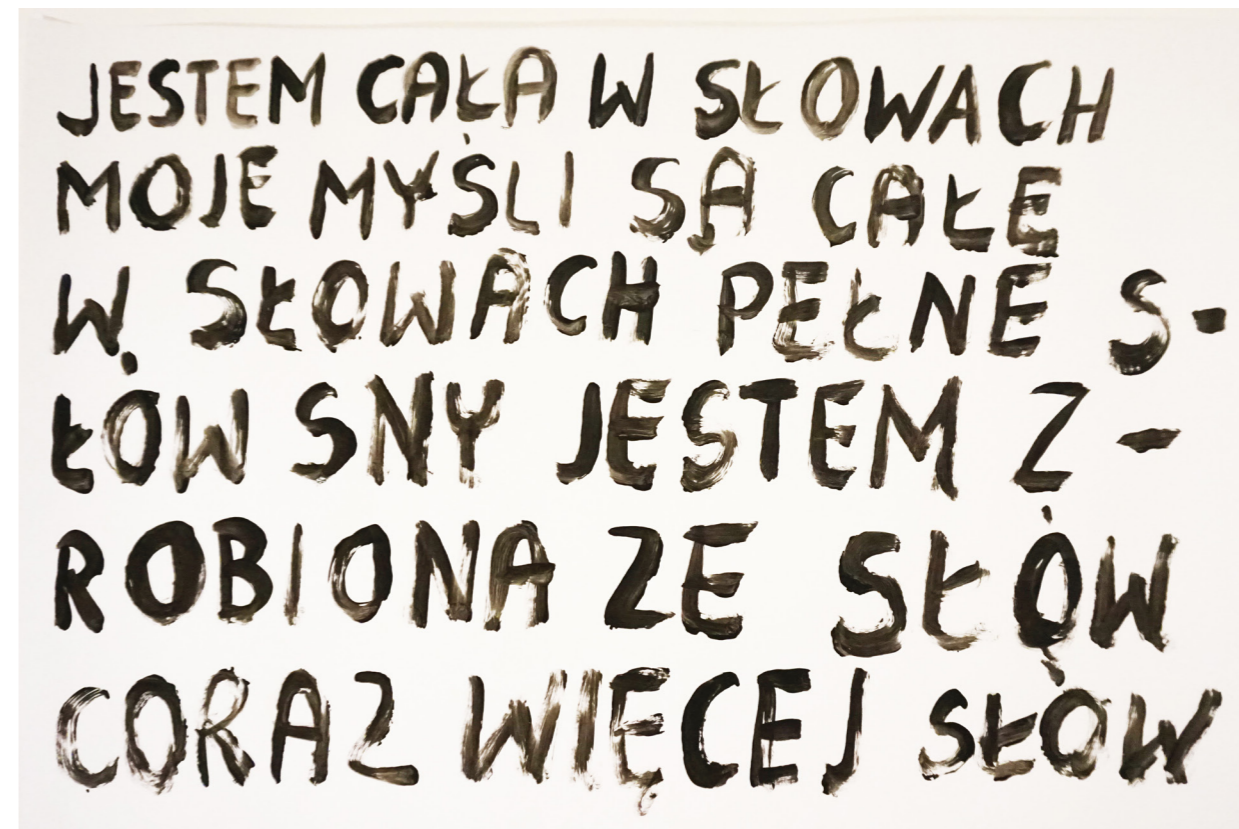 JESTEM CAŁA W SŁOWACH
MOJE MYŚLI SĄ CAŁE
W SŁOWACH PEŁNE S-
ŁÓW SNY JESTEM Z-
ROBIONA ZE SŁÓW
CORAZ WIĘCEJ SŁÓW